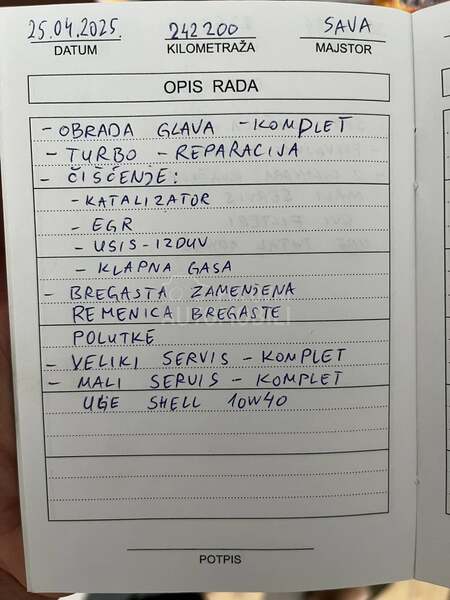 25.04.2025. 242200 SAVA
DATUM KILOMETRAŽA MAJSTOR
OPIS RADA
- OBRADA GLAVA - KOMPLET
- TURBO - REPARACIJA
- ČIŠĆENJE:
- KATALIZATOR
- EGR
- USIS - IZDUV
- KLAPNA GASA
- BREGASTA ZAMENJENA
REMENICA BREGASTE
POLUTKE
- VELIKI SERVIS - KOMPLET
- MALI SERVIS - KOMPLET
ULJE SHELL 10W40
POTPIS